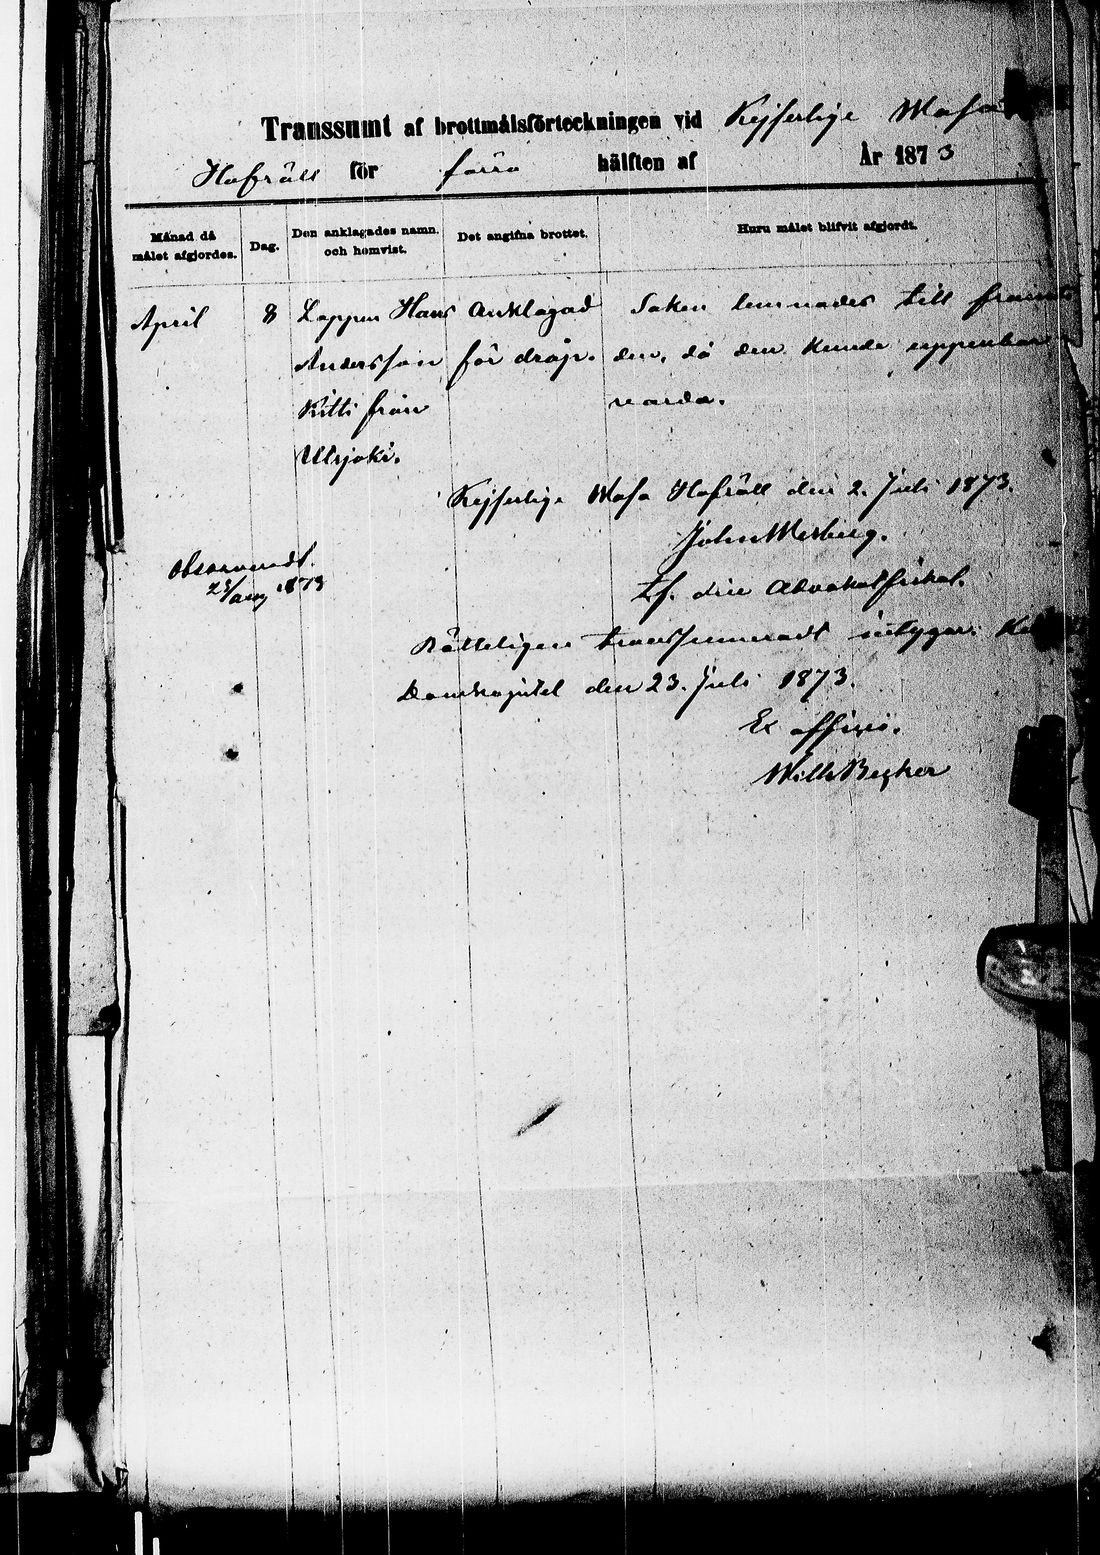 Transsumt af brottmålsförteckningen vid Kejserlige Wasa
Hofrätt för förra hälften af År 1873
Månad då målet afgjordes.
Dag.
Den anklagades namn och hemvist.
Det angifna brottet.
Huru målet blifvit afgjordt.
April 8 Lappen Hans Anklagad Saken lemnades till framti
Andersson för dråp. den, då den kunde uppenbar
Kitti från warda.
Utsjoki.
Kejserlige Wasa Hofrätt den 2. Juli 1873.
John Wesberg.
tf.
Advokatfiskal.
Observeradt.
25/aug 1873
Rätteligen transsumeradt intygar:
Domkapitel den 23. Juli 1873.
Ex officio.
Wilh Becker